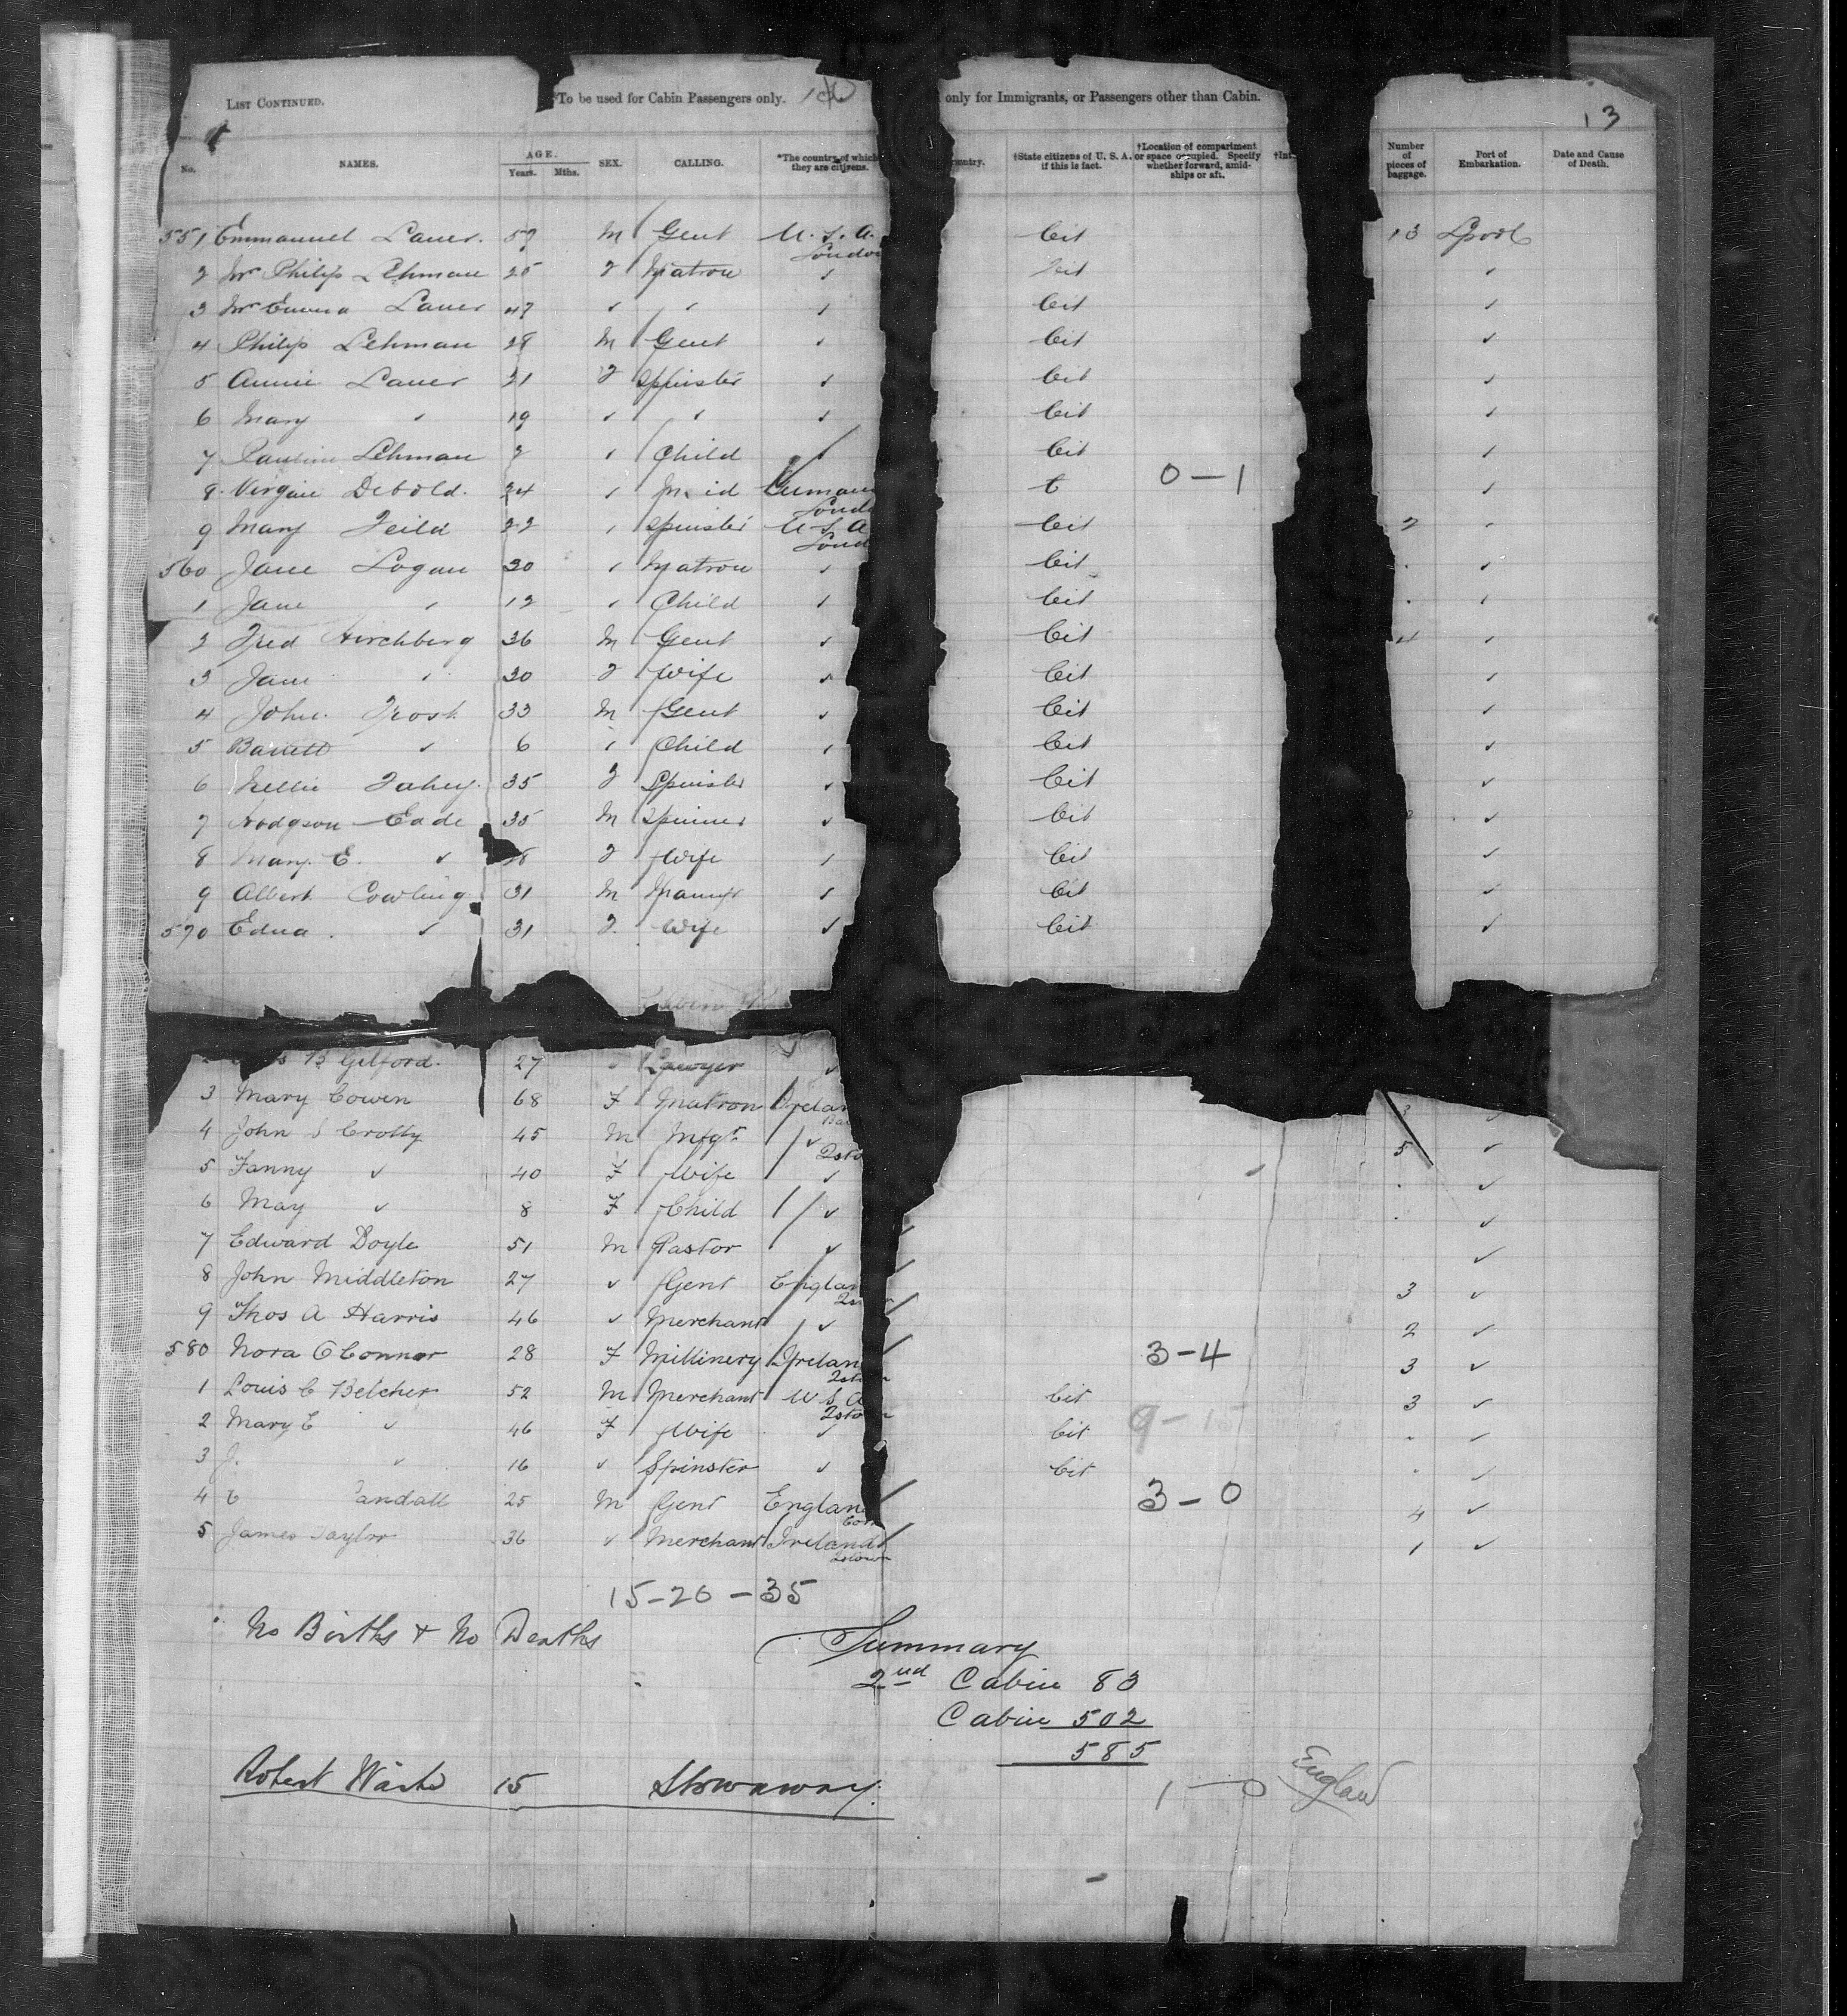 LIST CONTINUED. *To be used for Cabin Passengers only. only for Immigrants, or Passengers other than Cabin. 13
No. NAMES. AGE. Years. Mths. SEX. CALLING. *The country of which they are citizens. country. †State citizens of U. S. A. if this is fact. †Location of compartment or space occupied. Specify whether forward, amidships or aft. †Int Number of pieces of baggage. Port of Embarkation. Date and Cause of Death.
551 Emmanuel Lauer. M Gent U. S. A. Cit 13 Lpool
London
2 Mrs Philip Lehman Matron ✓ Cit ✓
3 Mrs Emma Lauer 47 ✓ ✓ ✓ Cit ✓
4 Philip Lehman 28 M Gent ✓ Cit ✓
5 Annie Lauer 21 F Spinster ✓ Cit ✓
6 Mary ✓ 19 ✓ ✓ ✓ Cit ✓
7 Pauline Lehman 2 ✓ Child ✓ Cit ✓
8 Virgin Debold. 24 ✓ German t 0-1 ✓
Lond
9 Mary Feild 22 ✓ Spinster U S A Cit 2 ✓
Lond
560 Jane Logan 30 ✓ Matron ✓ Cit ✓
1 Jane ✓ 12 ✓ Child ✓ Cit ✓
2 Fred Hirchberg 36 M Gent ✓ Cit 4 ✓
3 Jane ✓ 30 F Wife ✓ Cit ✓
4 John Frost 33 M Gent ✓ Cit ✓
5 Barrett ✓ 6 ✓ Child ✓ Cit ✓
6 Nellie Fahey. 35 F Spinster ✓ Cit ✓
7 Hodgson Eade 35 M Spinner ✓ Cit ✓
8 Mary E. ✓ 8 F Wife ✓ Cit ✓
9 Albert Cowling 31 M Manufr ✓ Cit ✓
570 Edna ✓ 31 F. Wife ✓ Cit ✓
B Gilford. 27 Lawyer ✓
3 Mary Cowen 68 F Matron Irelan
4 John S Crotty 45 M Mfgr ✓ 5 ✓
Qsto
5 Fanny ✓ 40 F Wife ✓ ✓
6 May ✓ 8 F Child ✓ ✓
7 Edward Doyle 51 M Pastor ✓ ✓
8 John Middleton 27 ✓ Gent Englan 3 ✓
9 Thos A Harris 46 ✓ Merchant ✓ 2 ✓
580 Nora O'Connor 28 F Millinery Irelan 3-4 3 ✓
1 Louis C Belcher 52 M Merchant U S A Cit 3 ✓
Qsto
2 Mary E ✓ 46 F Wife ✓ Cit 9-15 ✓
3 J. ✓ 16 ✓ Spinster ✓ Cit ✓
4 andall 25 M Gent England 3-0 4 ✓
5 James Taylor 36 ✓ Merchant Ireland 1 ✓
Qstown
15-20-35
No Births & No Deaths Summary
2nd Cabin 83
Cabin 502
585
Robert 15 Stowaway. 1-0 England